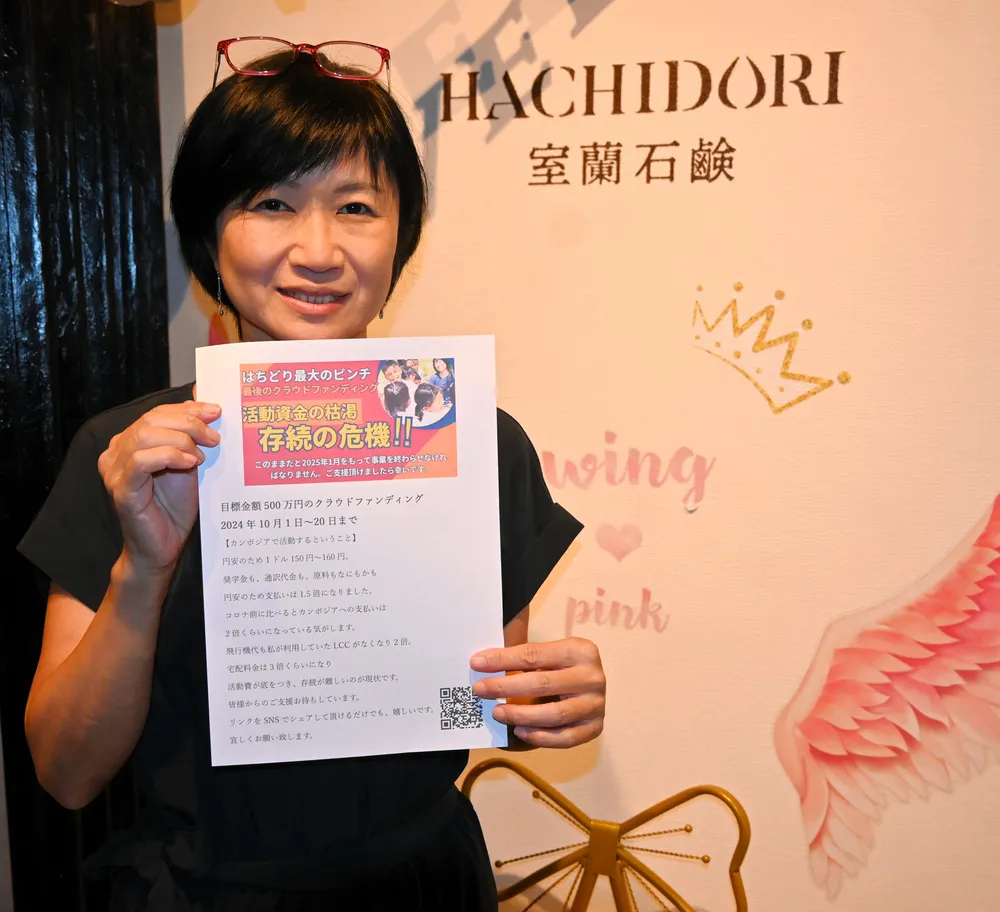 HACHIDORI
室蘭石鹸
wing
pink
はちどり最大のピンチ
最後のクラウドファンディング
活動資金の枯渇
存続の危機!!
このままだと2025年1月をもって事業を終わらせなけれ
ばなりません。ご支援頂けましたら幸いです。
目標金額 500 万円のクラウドファンディング
2024 年 10 月 1 日～20 日まで
【カンボジアで活動するということ】
円安のため 1 ドル 150 円～160 円。
奨学金も、通訳代金も、原料もなにもかも
円安のため支払いは 1.5 倍になりました。
コロナ前に比べるとカンボジアへの支払いは
2 倍くらいになっている気がします。
飛行機代も私が利用していた LCC がなくなり 2 倍。
宅配料金は 3 倍くらいになり
活動費が底をつき、存続が難しいのが現状です。
皆様からのご支援お待ちしています。
リンクを SNS でシェアして頂けるだけでも、嬉しいです。
宜しくお願い致します。